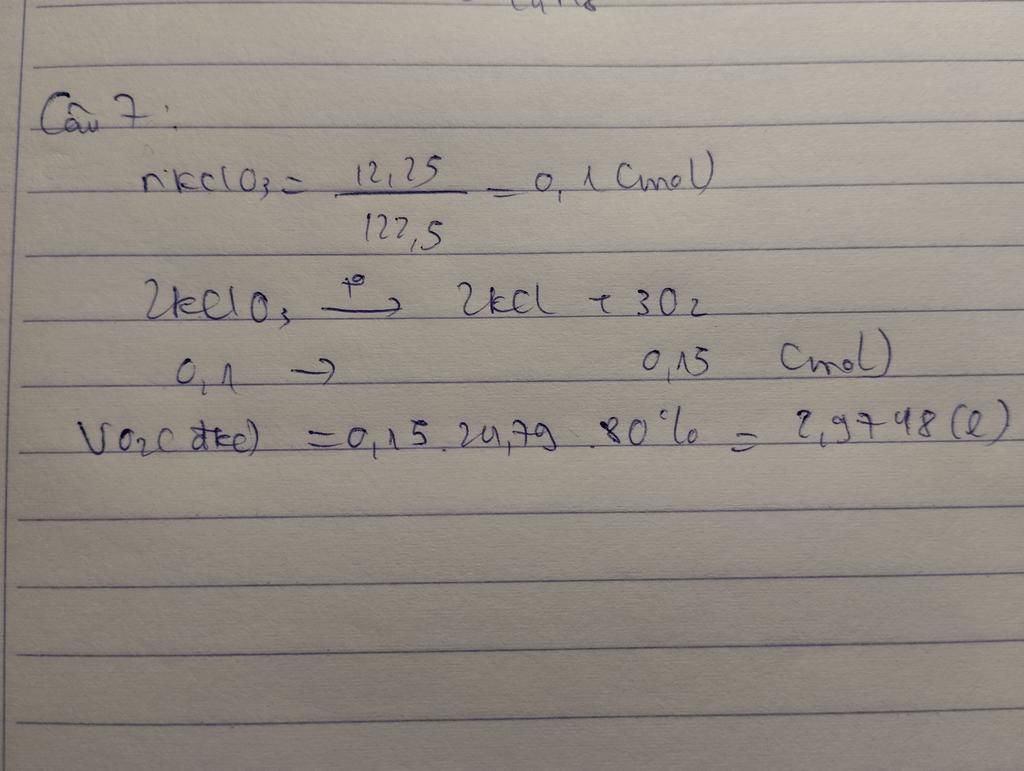 Câu 7:
nKClO3 = 12,25 / 122,5 = 0,1 (mol)
2KClO3 t° → 2KCl + 3O2
0,1 → 0,15 (mol)
VO2(đkc) = 0,15.24,79.80% = 2,9748 (l)